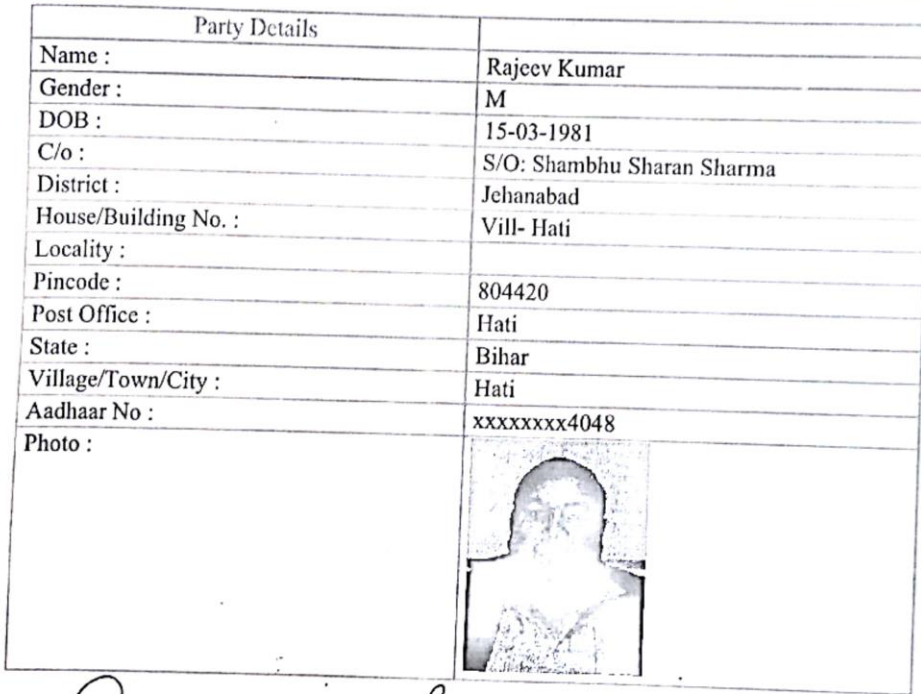 Party Details
Name : Rajeev Kumar
Gender : M
DOB : 15-03-1981
C/o : S/O: Shambhu Sharan Sharma
District : Jehanabad
House/Building No. : Vill- Hati
Locality :
Pincode : 804420
Post Office : Hati
State : Bihar
Village/Town/City : Hati
Aadhaar No : xxxxxxxx4048
Photo :